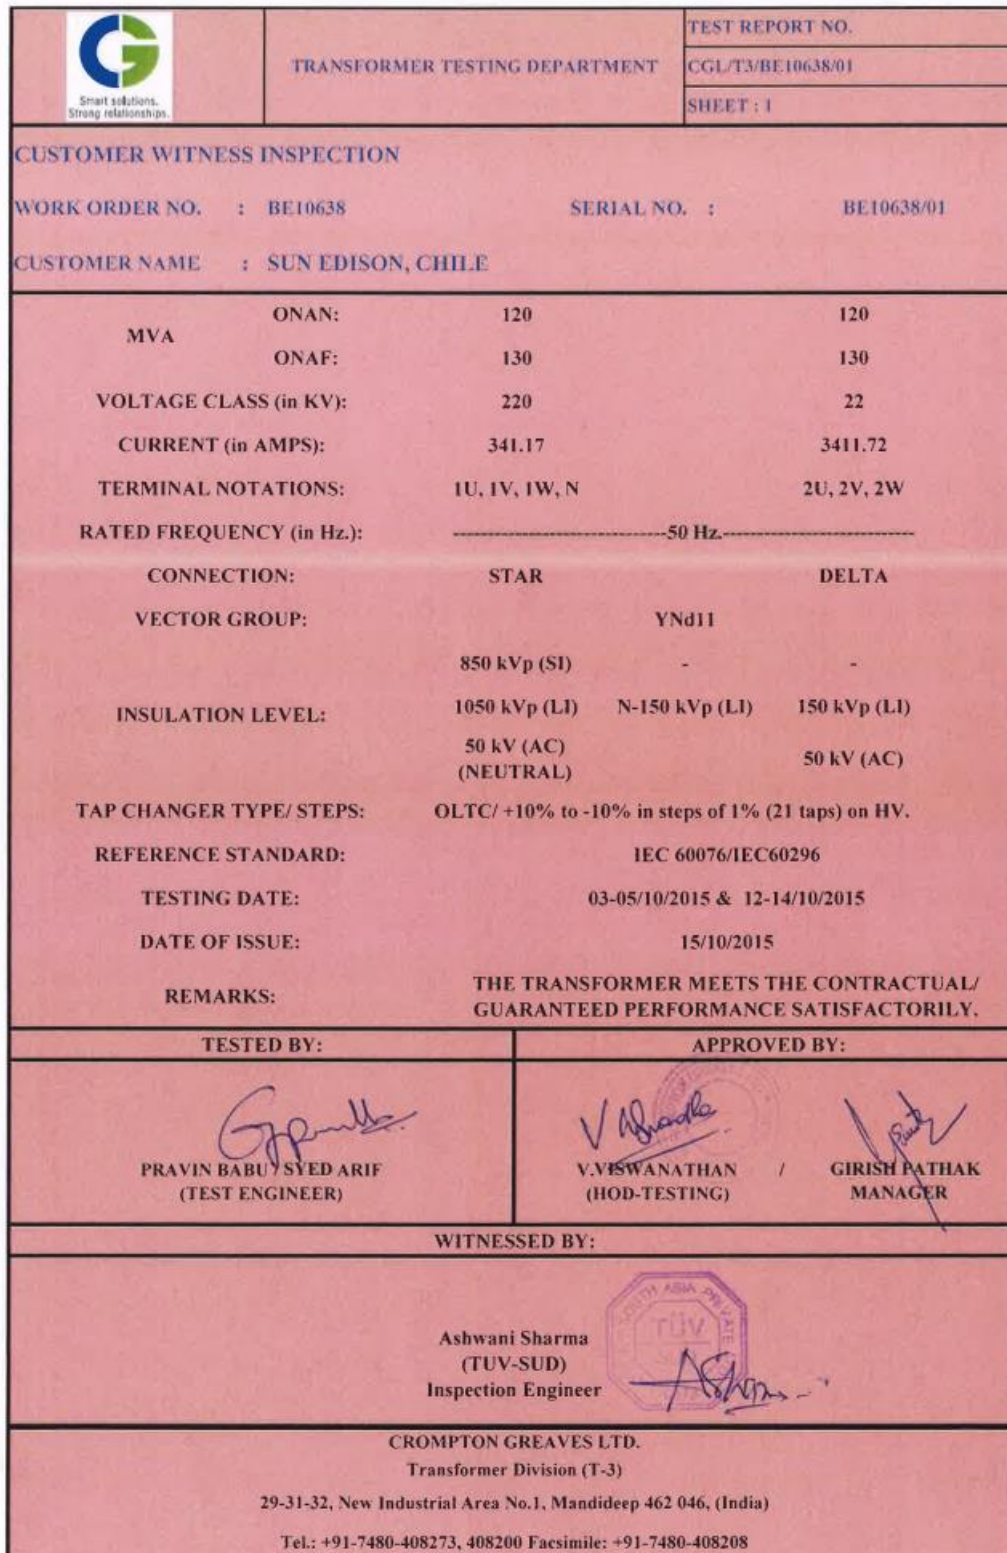 Smart solutions.
Strong relationships.
TRANSFORMER TESTING DEPARTMENT
TEST REPORT NO.
CGL/T3/BE10638/01
SHEET : 1
CUSTOMER WITNESS INSPECTION
WORK ORDER NO. : BE10638 SERIAL NO. : BE10638/01
CUSTOMER NAME : SUN EDISON, CHILE
MVA
ONAN: 120 120
ONAF: 130 130
VOLTAGE CLASS (in KV): 220 22
CURRENT (in AMPS): 341.17 3411.72
TERMINAL NOTATIONS: 1U, 1V, 1W, N 2U, 2V, 2W
RATED FREQUENCY (in Hz.): -------------------------------50 Hz.----------------------------
CONNECTION: STAR DELTA
VECTOR GROUP: YNd11
INSULATION LEVEL:
850 kVp (SI) - -
1050 kVp (LI) N-150 kVp (LI) 150 kVp (LI)
50 kV (AC)
(NEUTRAL)
50 kV (AC)
TAP CHANGER TYPE/ STEPS: OLTC/ +10% to -10% in steps of 1% (21 taps) on HV.
REFERENCE STANDARD: IEC 60076/IEC60296
TESTING DATE: 03-05/10/2015 & 12-14/10/2015
DATE OF ISSUE: 15/10/2015
REMARKS: THE TRANSFORMER MEETS THE CONTRACTUAL/
GUARANTEED PERFORMANCE SATISFACTORILY.
TESTED BY: APPROVED BY:
PRAVIN BABU / SYED ARIF
(TEST ENGINEER)
V.VISWANATHAN /
(HOD-TESTING)
GIRISH PATHAK
MANAGER
WITNESSED BY:
Ashwani Sharma
(TUV-SUD)
Inspection Engineer
SOUTH ASIA PRIVATE
TÜV
CROMPTON GREAVES LTD.
Transformer Division (T-3)
29-31-32, New Industrial Area No.1, Mandideep 462 046, (India)
Tel.: +91-7480-408273, 408200 Facsimile: +91-7480-408208